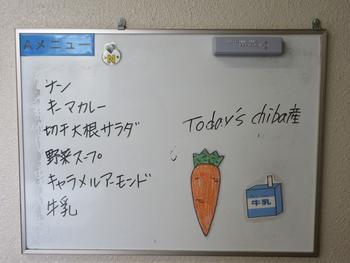 Aメニュー
N
ナン
キーマカレー
切干大根サラダ
野菜スープ
キャラメルアーモンド
牛乳
Today's chiba産
牛乳